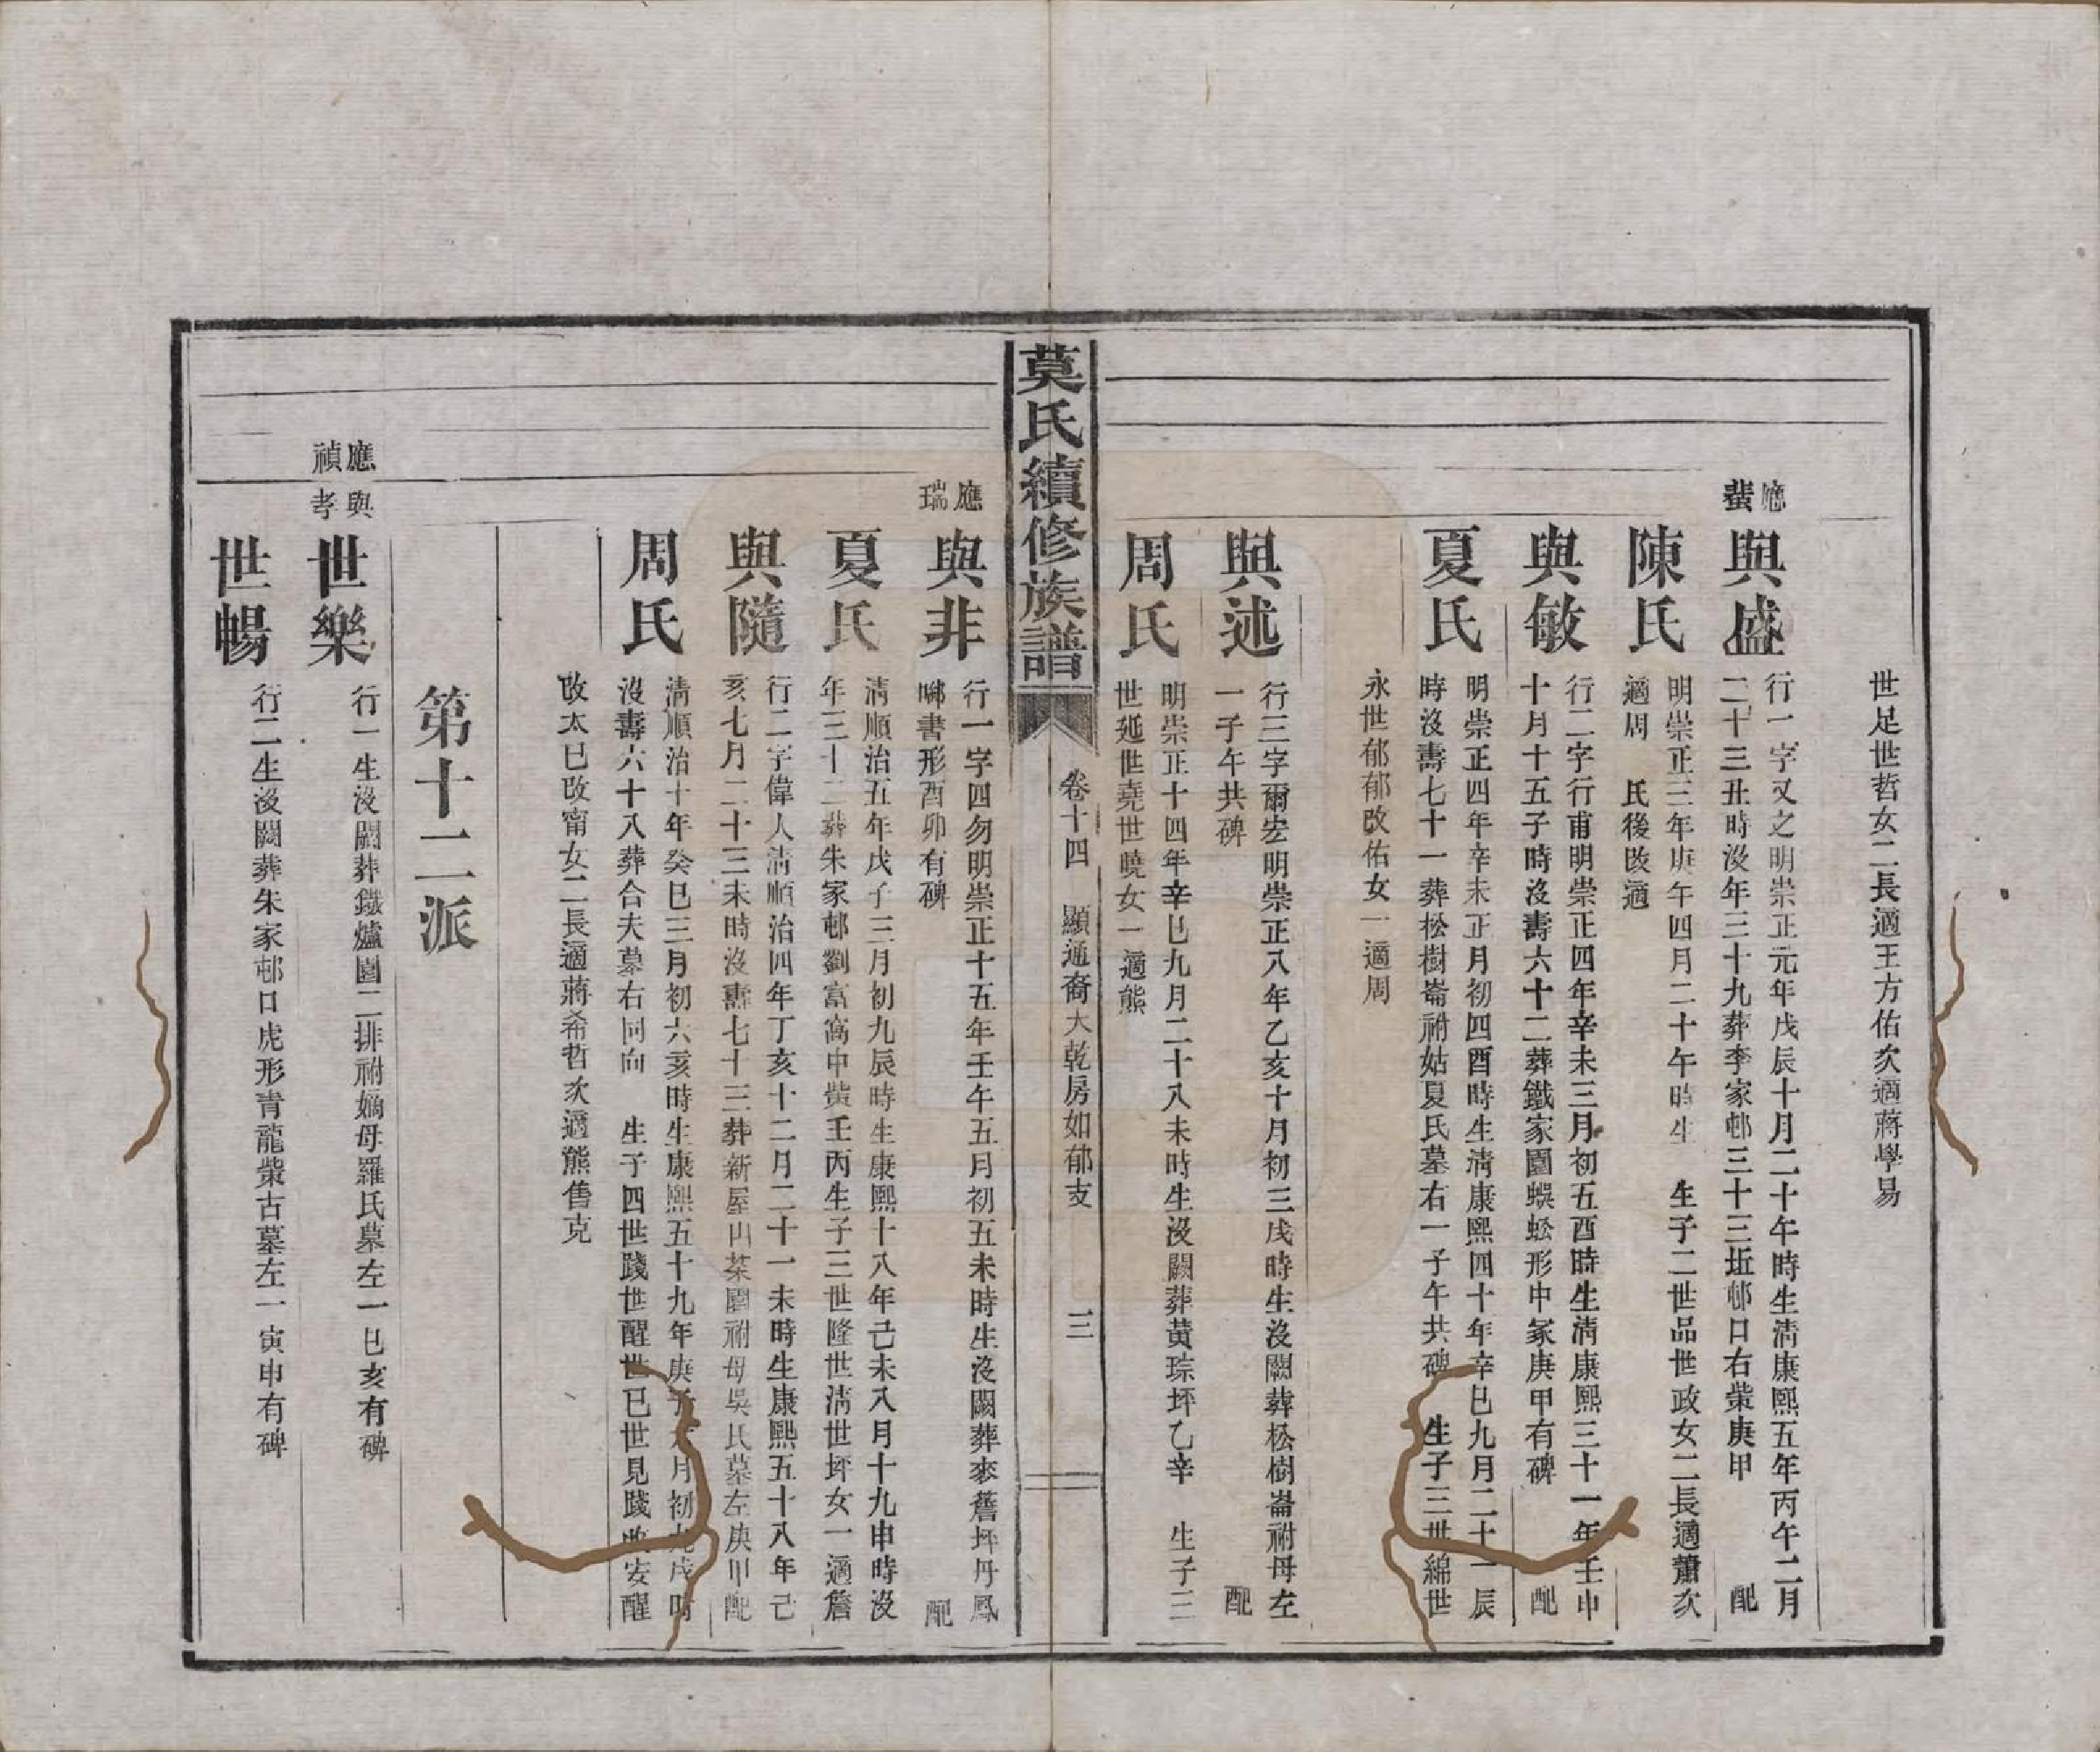 世足世哲女二長適王方佑次適蔣學易
應蜚
與盛
行一字又之明崇正元年戊辰十月二十午時生清康熙五年丙午二月
二十三丑時沒年三十九葬李家邨三十三坵邨口右檠庚甲　配
陳氏
明崇正三年庚午四月二十午時生　生子二世品世政女二長適蕭次
適周　氏後改適
與敏
行二字行甫明崇正四年辛未三月初五酉時生清康熙三十一年壬申
十月十五子時沒壽六十二葬鐵家園蜈蚣形申冢庚甲有碑　配
夏氏
明崇正四年辛未正月初四酉時生清康熙四十年辛巳九月二十一辰
時沒壽七十一葬松樹崙祔姑夏氏墓右一子午共碑　生子三世綿世
永世郁郁改佑女一適周
與述
行三字爾宏明崇正八年乙亥十月初三戌時生沒闕葬松樹崙祔母左
一子午共碑　配
周氏
明崇正十四年辛巳九月二十八未時生沒闕葬黃琮坪乙辛　生子三
世延世堯世曉女一適熊
莫氏續修族譜
卷十四　顯通裔大乾房如郁支　三
應瑞
與非
行一字四勿明崇正十五年壬午五月初五未時生沒闕葬麥簷坪丹鳳
啣書形酉卯有碑　配
夏氏
清順治五年戊子三月初九辰時生康熙十八年己未八月十九申時沒
年三十二葬朱家邨劉富窩中檠壬丙生子三世隆世清世坪女一適詹
與隨
行二字偉人清順治四年丁亥十二月二十一未時生康熙五十八年己
亥七月二十三未時沒壽七十三葬新屋山茶園祔母吳氏墓左庚甲配
周氏
清順治十年癸巳三月初六亥時生康熙五十九年庚子月初九戌時
沒壽六十八葬合夫墓右同向　生子四世踐世醒世已世見踐改安醒
改太已改甯女二長適蔣希哲次適熊售克
第十二派
應禎
與孝
世樂
行一生沒闕葬鐵爐園二排祔嫡母羅氏墓左一巳亥有碑
世暢
行二生沒闕葬朱家邨口虎形青龍檠古墓左一寅申有碑